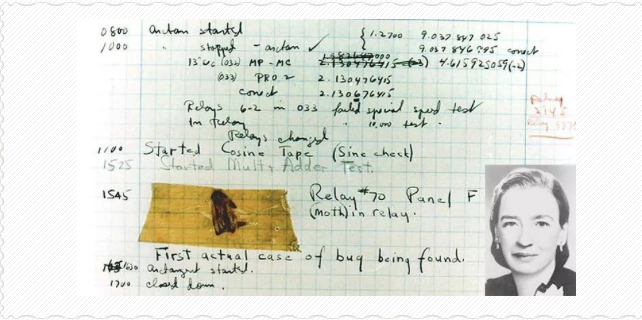 0800 antan started
1000 " stopped - antan ✓ { 1.2700 9.037 847 025
9.037 846 995 correct
13"UC (032) MP - MC 2.130476415 (-3) 4.615925059(-2)
(033) PRO 2 2.130476415
correct 2.130676415
Relays 6-2 in 033 failed special speed test
In Relay " 10,000 test.
Relays changed
1100 Started Cosine Tape (Sine check)
1525 Started Mult + Adder Test.
1545 Relay #70 Panel F
(moth) in relay.
First actual case of bug being found.
antangent started.
1700 closed down.